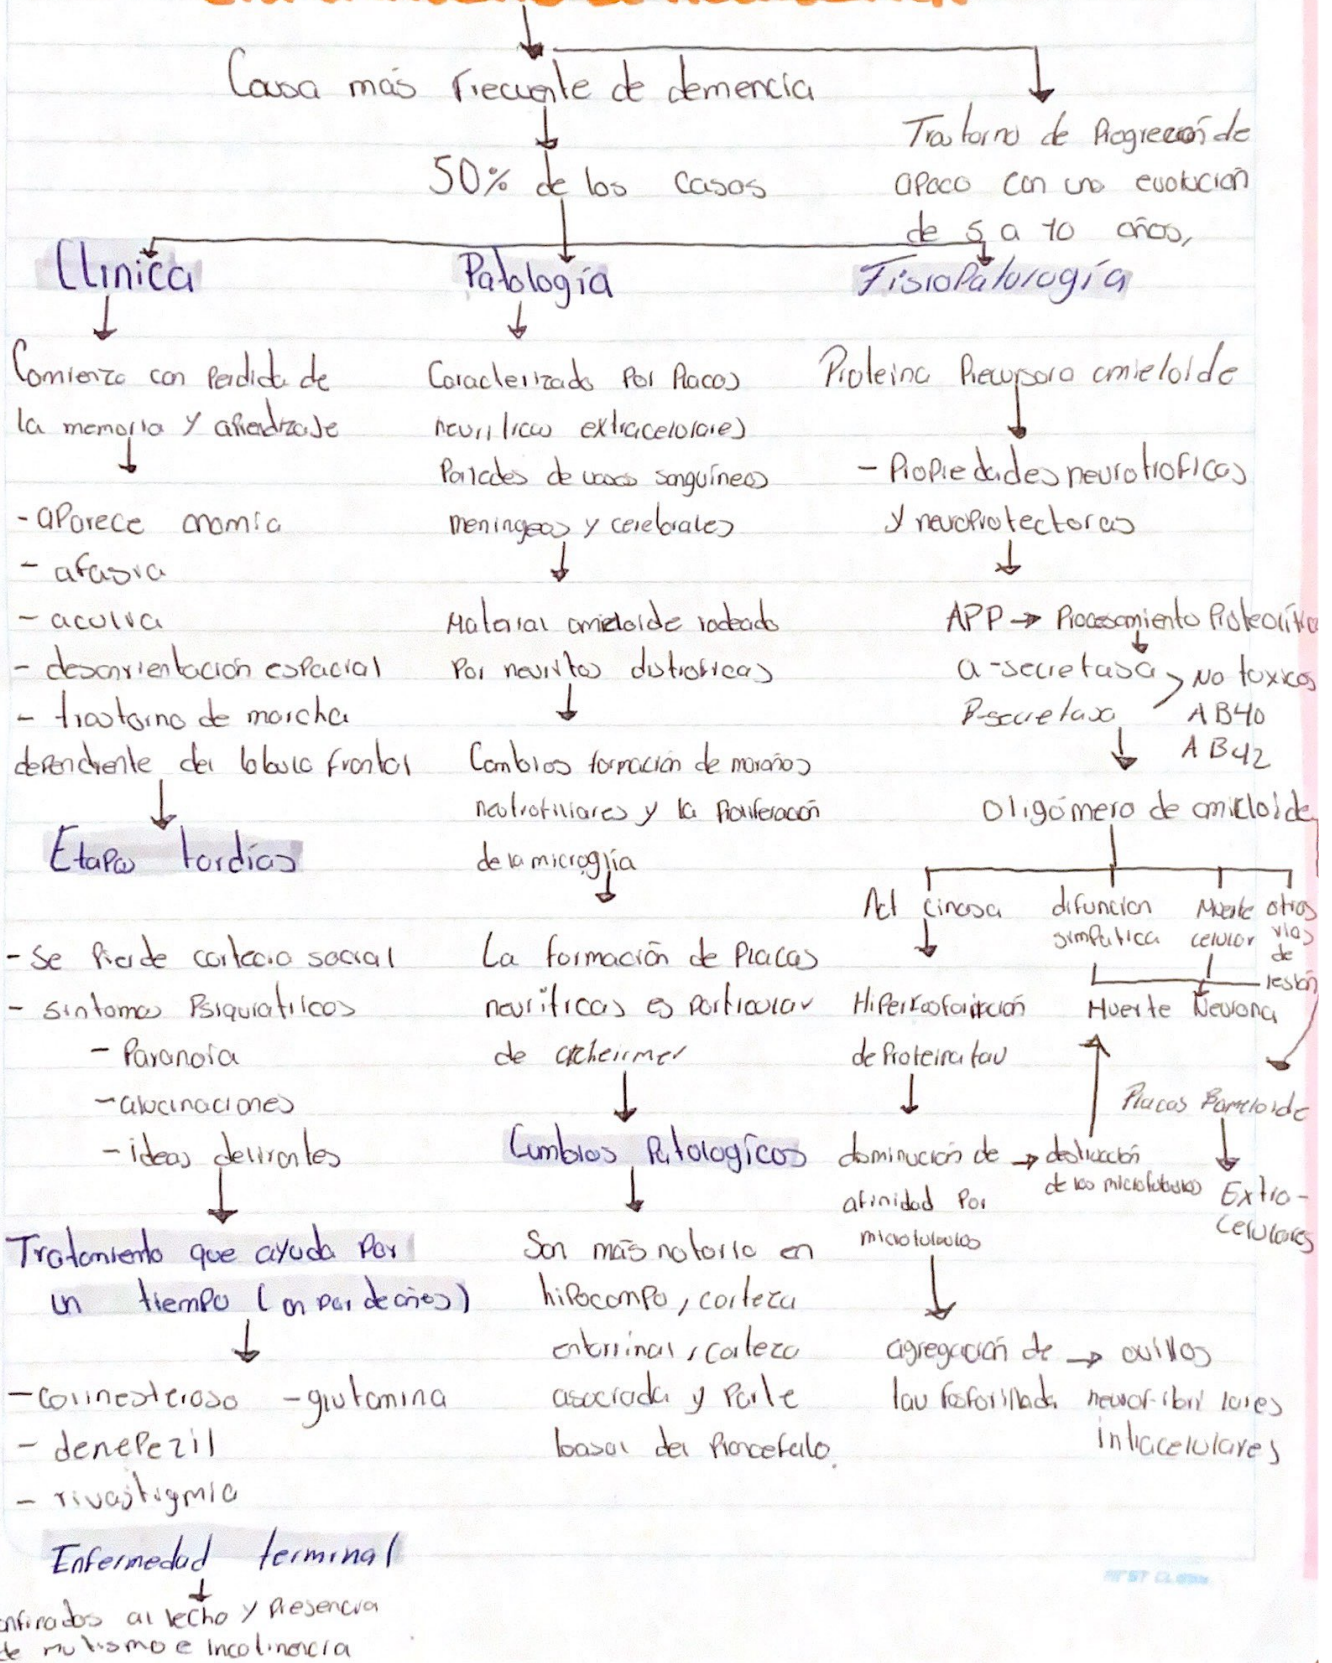 Causa más frecuente de demencia
50% de los casos
Trastorno de Progresión de
apoco con una evolución
de 5 a 10 años,
Clínica
Comienza con perdida de
la memoria y aprendizaje
- aparece anomia
- afasia
- desorientación espacial
- trastorno de marcha
dependiente del lobulo frontal
Etapas tardías
- Se pierde cortecia social
- sintomas Psiquiatricos
- Paranoia
- alucinaciones
- ideas delirantes
Tratamiento que ayuda por
un tiempo (un par de años)
- colinesterasa - glutamina
- denepezil
- rivastigmia
Enfermedad terminal
confinados al lecho y presencia
de mutismo e incotinencia
Patología
Caracterizado por Placas
neuriticas extracelulares
Paredes de vasos sanguíneos
meningeos y cerebrales
Material amieloide rodeado
por neuritas distroficas
Cambios formación de marañas
neutrofiliares y la proliferación
de la microglía
La formación de Placas
neuríticas es particular
de
Cambios Patologicos
Son más notorio en
hipocampo, corteza
entorrinal, corteza
asociada y parte
basal del Proncefalo.
Fisiopatología
Proteina Precursora amieloide
- Propiedades neurotroficas
y neuroprotectoras
APP → Procesamiento Proteolítico
a-secretasa
B-secretasa
No toxicos
AB40
AB42
Oligómero de amieloide
Act cinasa
difuncion
Muerte
celular
otras
vias
de
lesión
Muerte Neurona
de Proteina tau
Placas
Extra-
celulares
diminución de → destrucción
afinidad por
de los microtubulos
microtubulos
agregación de → ovillos
tau fosforillada neurofibrilares
intracelulares